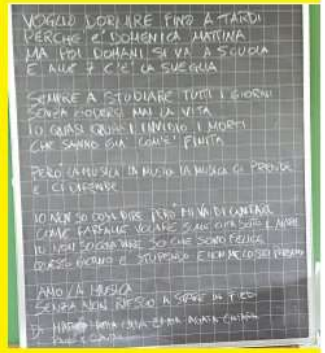 VOGLIO DORMIRE FINO A TARDI
PERCHE È DOMENICA MATTINA
MA POI DOMANI SI VA A SCUOLA
E ALLE 7 C'È LA SVEGLIA
SEMPRE A STUDIARE TUTTI I GIORNI
SENZA GODERSI MAI LA VITA
IO QUASI QUASI I INVIDIO I MORTI
CHE SANNO GIÀ COM'È FINITA
PERÒ LA MUSICA LA MUSICA LA MUSICA CI PRENDE
E CI DIFENDE
IO NON SO COSA DIRE PERÒ MI VA DI CANTARE
COME FARFALLE VOLARE
IO NON SO COSA DIRE SO CHE SONO FELICE
QUESTO GIORNO È STUPENDO E NON ME LO SO
AMO LA MUSICA
SENZA NON RIESCO A STARE IN PIEDI